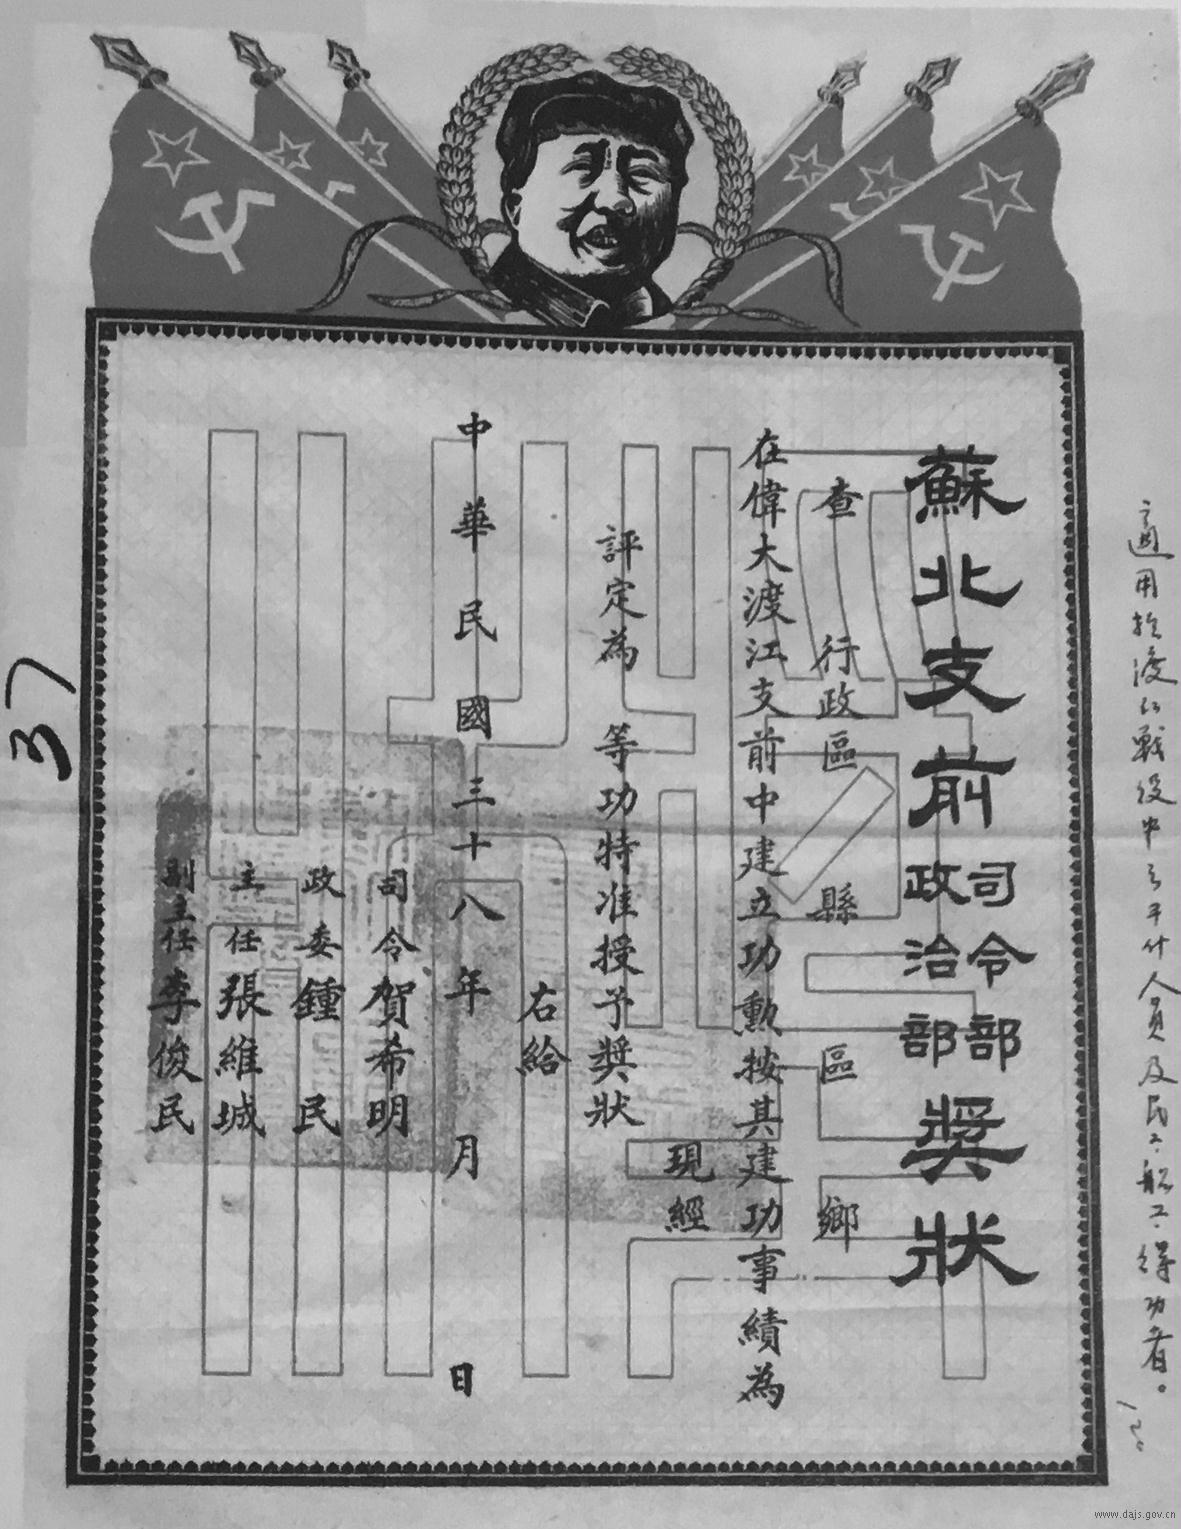 適用於渡江戰役中之干什人員及民工船工得功者。
蘇北支前司令部政治部獎狀
查 行政區 縣 區 鄉
在偉大渡江支前中建立功勳按其建功事績為
現經
評定為 等功特准授予獎狀
右給
中華民國三十八年 月 日
司令賀希明
政委鍾民
主任張維城
副主任李俊民
37
www.dajs.gov.cn